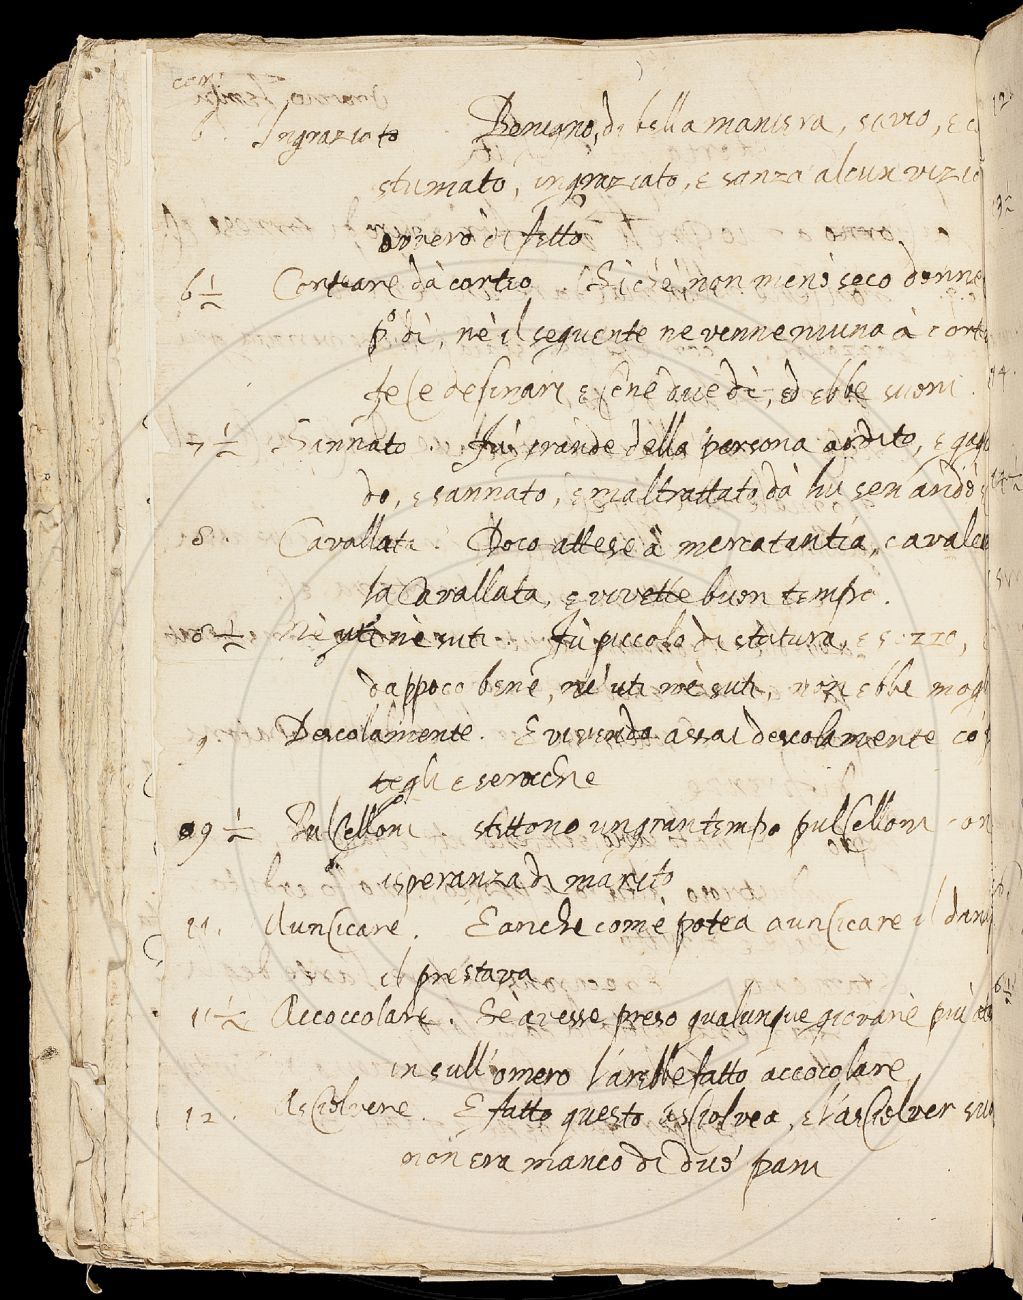 6 Ingraziato Benigno, di bella maniera, savio, e co
stumato, ingraziato, e sanza alcun vizio
ovvero difetto
6½ Corteare dà corteo Si che non menò seco donne
pº dì, nè il seguente ne venne niuna à corte
fece desinari e cene due dì, ed ebbe suoni
7½ Sannato. Fù grande della persona ardito, e gagl
do, e sannato, e maltrattato dà lui sen andò
8 Cavallata. Poco attese à mercatantia, cavalcò
la Cavallata, e vivette buon tempo.
8½ Nè uti nè suti. Fù piccolo di statura, e sozzo,
dappoco bene, nè uti nè suti, non ebbe mogl
9 Descolamente. E vivendo assai descolamente co
tegli e seroche
9½ Pulcelloni. stettono un gran tempo pulcelloni con
isperanza di marito
11. Auncicare. E anche come potea auncicare il dana
il prestava
11½ Accoccolare. Se avesse preso qualunque giovane più
in sull'omero l'arebbe fatto accocolare
12. Asciolvere. E fatto questo asciolvea, e l'asciolver suo
non era manco di due pani